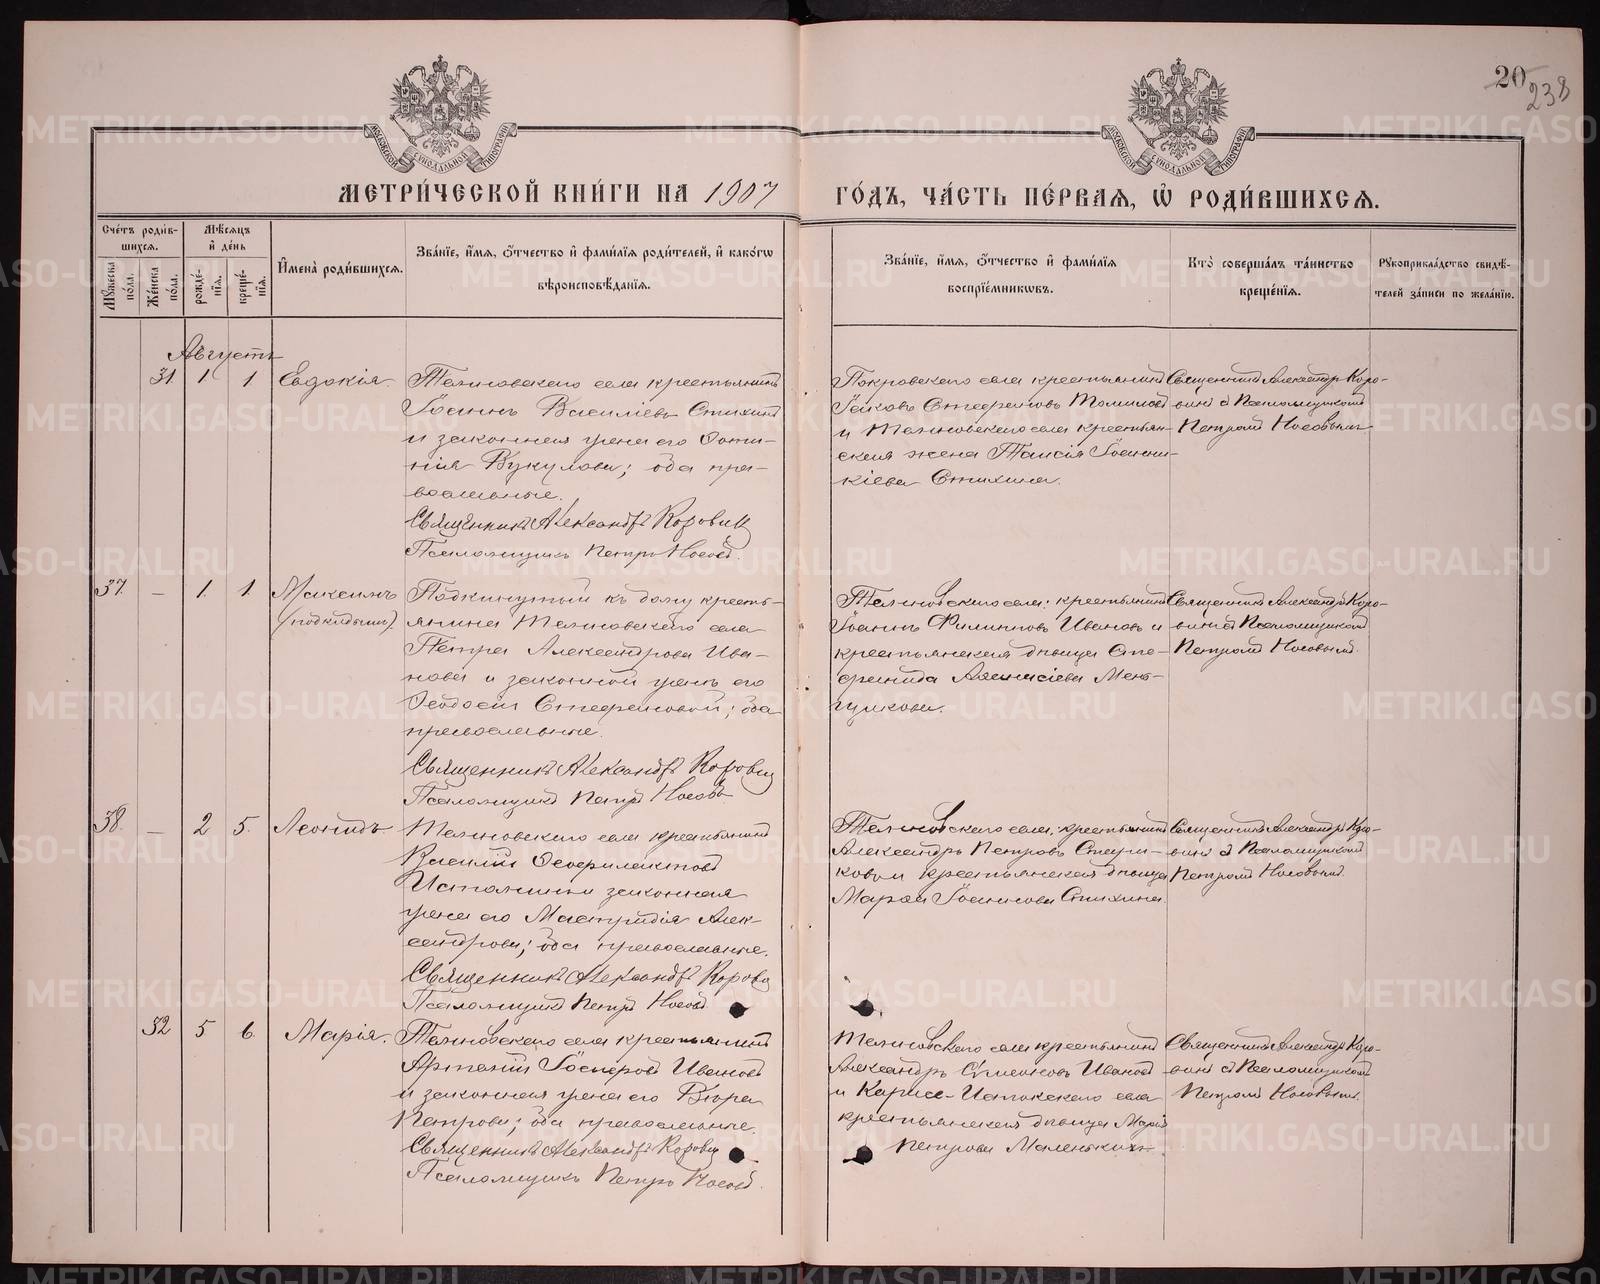 20
238
МОСКОВСКОЙ СѴНОДАЛЬНОЙ ТИПОГРАФІИ
МОСКОВСКОЙ СѴНОДАЛЬНОЙ ТИПОГРАФІИ
МЕТРИ́ЧЕСКОЙ КНИ́ГИ НА 1907
ГО́ДЪ, ЧА́СТЬ ПЕ́РВАѦ, Ѡ РОДИ́ВШИХСѦ.
Сче́тъ роди́вшихсѧ.
Мѣ́сѧцъ и҆ де́нь
Мꙋ́жеска по́ла.
Же́нска по́ла.
рожде́нїѧ.
креще́нїѧ.
И҆мена̀ роди́вшихсѧ.
Зва́нїе, и҆́мѧ, ѻ҆́тчество и҆ фами́лїѧ роди́телей, и҆ како́гѡ
вѣроисповѣ́данїѧ.
Зва́нїе, и҆́мѧ, ѻ҆́тчество и҆ фами́лїѧ
воспрїе́мникѡвъ.
Кто̀ соверша́лъ та́инство
креще́нїѧ.
Рꙋкоприкла́дство свидѣ́-
телей за́писи по жела́нїю.
Августъ
31 1 1 Евдокія.
Теляновскаго села крестьянинъ
Іоаннъ Василіевъ Стихинъ
и законная жена его Фоти-
нія Вукулова; оба пра-
вославные.
Священникъ Александръ Коровин
Псаломщикъ Петръ Носовъ.
Покровскаго села крестьянинъ
Іаковъ Стефановъ Томиловъ
и села крестьян-
ская жена Таисія Іоанни-
кіева Стихина.
Священникъ Александръ Коро-
винъ с Псаломщикомъ
Петромъ Носовымъ
37. — 1. 1. Максимъ
(подкидышъ).
Подкинутый къ дому кресть-
янина села
Петра Александрова Ива-
нова и законной жены его
Ѳеодосіи Стефановой; оба
православные.
Священникъ Александръ Коровин
Псаломщикъ Петръ Носовъ
села; крестьянинъ
Іоаннъ Филипповъ Ивановъ и
крестьянская дѣвица Сте-
фанида Аѳанасіева Мень-
Священникъ Александръ Коро-
винъ с Псаломщикомъ
Петромъ Носовымъ.
38. — 2 5. Леонидъ
села крестьянинъ
Василій Ѳеофилактовъ
Истоминъ и законная
жена его Мастридія Алек-
сандрова; оба православные.
Священникъ Александръ Корови
Псаломщикъ Петръ Носовъ.
села, крестьянинъ
Александръ Петровъ
ковъ и крестьянская дѣвица
Марѳа Іоаннова Стихина.
Священникъ Александръ Коро-
винъ с Псаломщикомъ
Петромъ Носовымъ.
32 5 6. Марія.
села крестьянинъ
Артемій Ивановъ
и законная жена его Вѣра
Петрова; оба православные.
Священникъ Александръ Коровин
Псаломщикъ Петръ Носовъ.
села крестьянинъ
Александръ Симеоновъ Ивановъ
и села
крестьянская дѣвица Марія
Петрова Маленькихъ
Священникъ Александръ Коро-
винъ с Псаломщикомъ
Петромъ Носовымъ.
METRIKI.GASO-URAL.RU